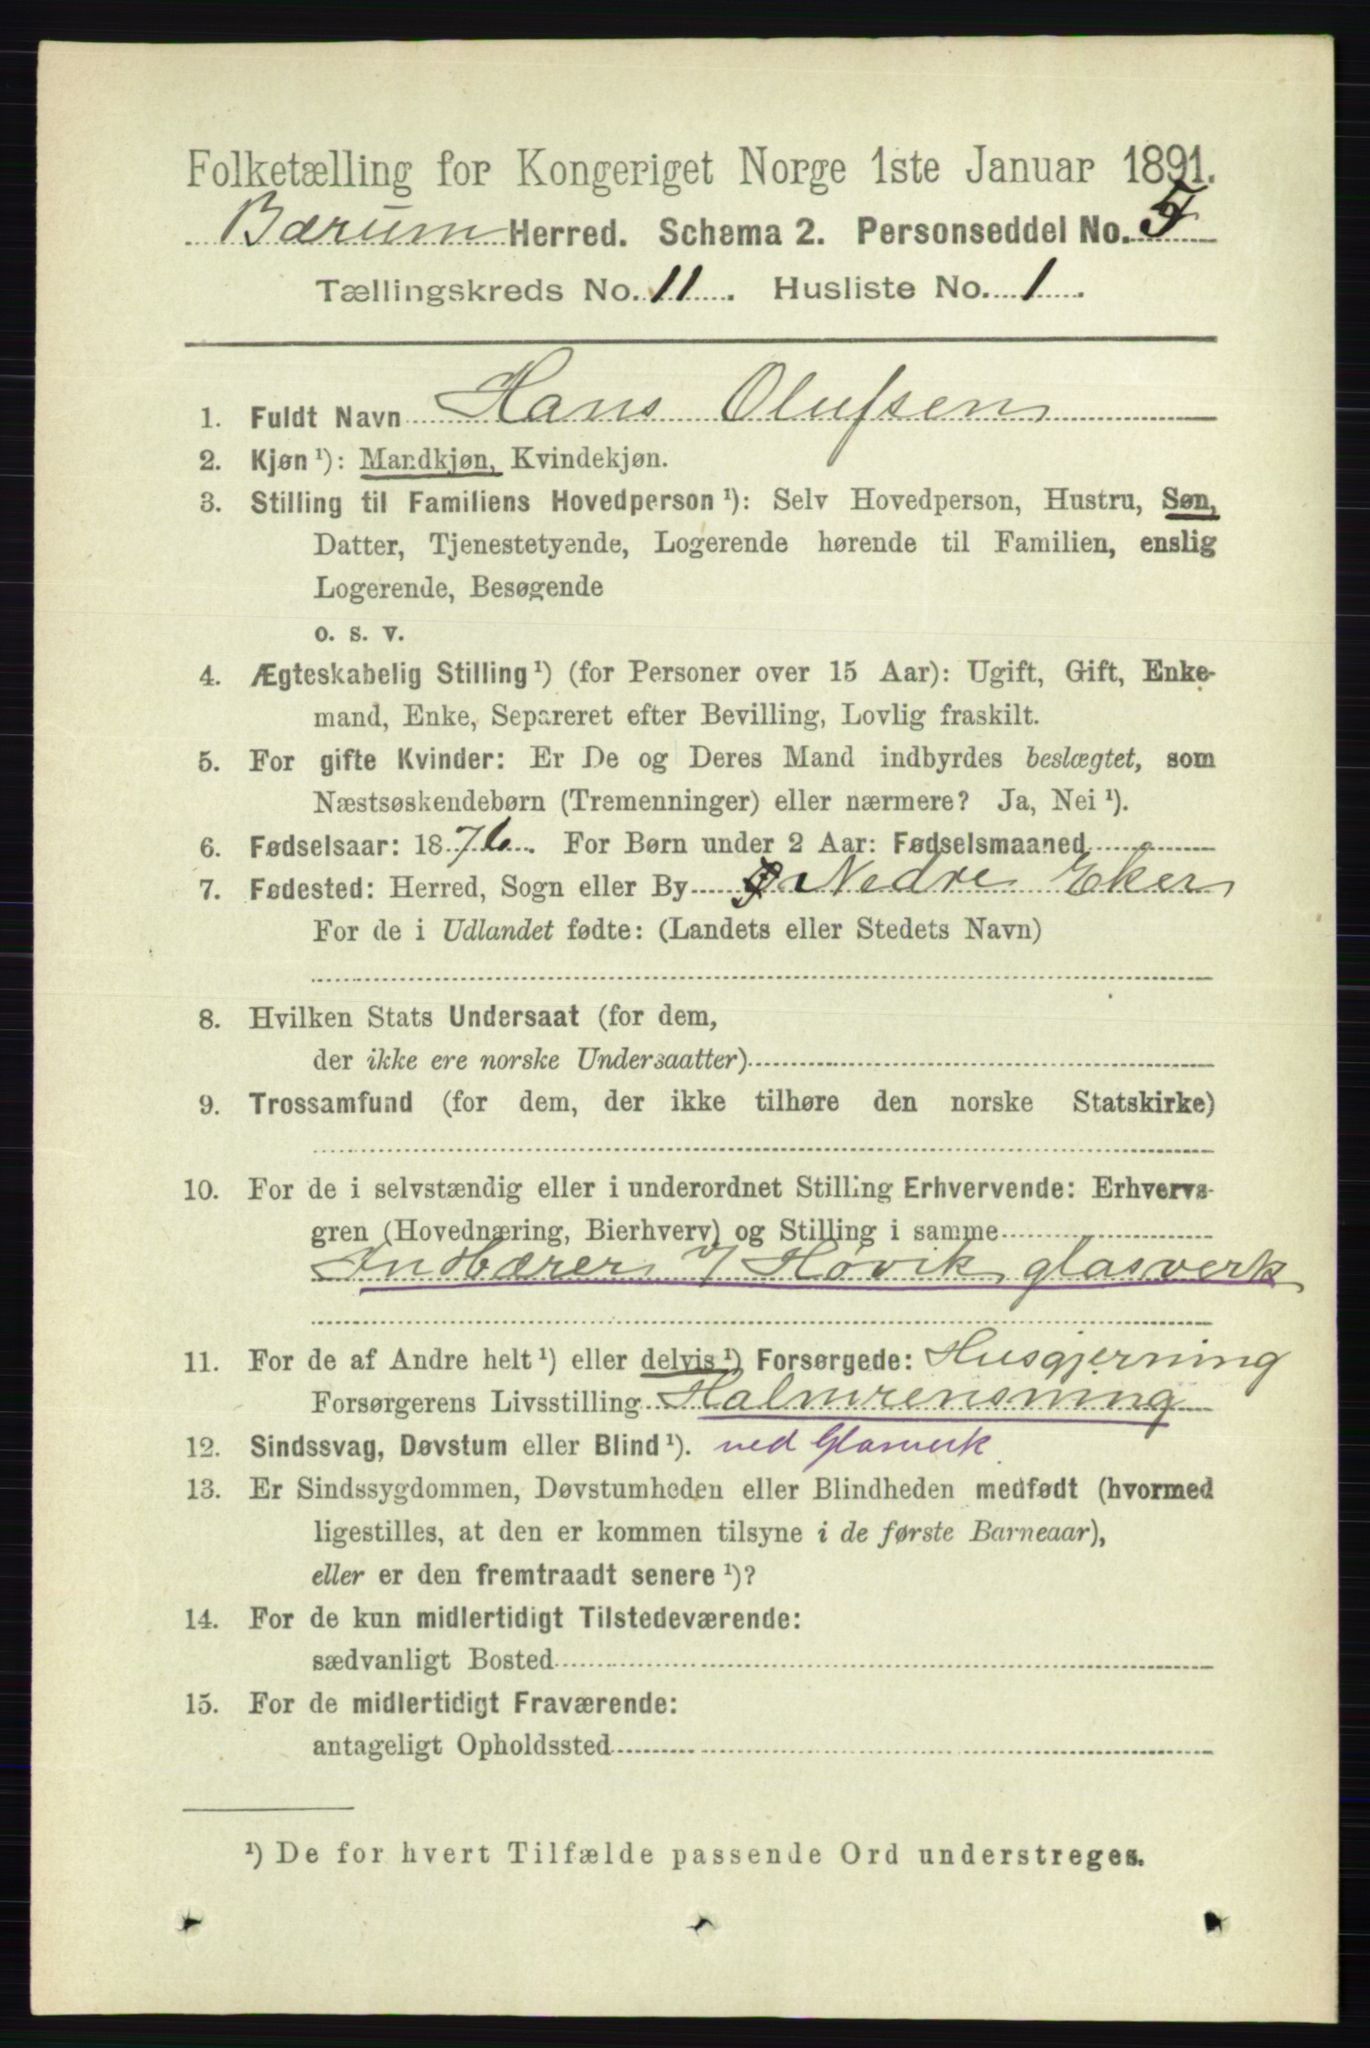 Folketælling for Kongeriget Norge 1ste Januar 1891.
Bærum Herred. Schema 2. Personseddel No. 5
Tællingskreds No. 11. Husliste No. 1.
1. Fuldt Navn Hans Olufsen
2. Kjøn ¹): Mandkjøn, Kvindekjøn.
3. Stilling til Familiens Hovedperson ¹): Selv Hovedperson, Hustru, Søn,
Datter, Tjenestetyende, Logerende hørende til Familien, enslig
Logerende, Besøgende
o. s. v.
4. Ægteskabelig Stilling ¹) (for Personer over 15 Aar): Ugift, Gift, Enke-
mand, Enke, Separeret efter Bevilling, Lovlig fraskilt.
5. For gifte Kvinder: Er De og Deres Mand indbyrdes beslægtet, som
Næstsøskendebørn (Tremenninger) eller nærmere? Ja, Nei ¹).
6. Fødselsaar: 1876. For Børn under 2 Aar: Fødselsmaaned
7. Fødested: Herred, Sogn eller By Nedre Eker
For de i Udlandet fødte: (Landets eller Stedets Navn)
8. Hvilken Stats Undersaat (for dem,
der ikke ere norske Undersaatter)
9. Trossamfund (for dem, der ikke tilhøre den norske Statskirke)
10. For de i selvstændig eller i underordnet Stilling Erhvervende: Erhvervs-
gren (Hovednæring, Bierhverv) og Stilling i samme
Indbærer v/ Høvik glasverk
11. For de af Andre helt ¹) eller delvis ¹) Forsørgede: Husgjerning
Forsørgerens Livsstilling Halmrensning
12. Sindssvag, Døvstum eller Blind ¹). ved Glasverk
13. Er Sindssygdommen, Døvstumheden eller Blindheden medfødt (hvormed
ligestilles, at den er kommen tilsyne i de første Barneaar),
eller er den fremtraadt senere ¹)?
14. For de kun midlertidigt Tilstedeværende:
sædvanligt Bosted
15. For de midlertidigt Fraværende:
antageligt Opholdssted
¹) De for hvert Tilfælde passende Ord understreges.